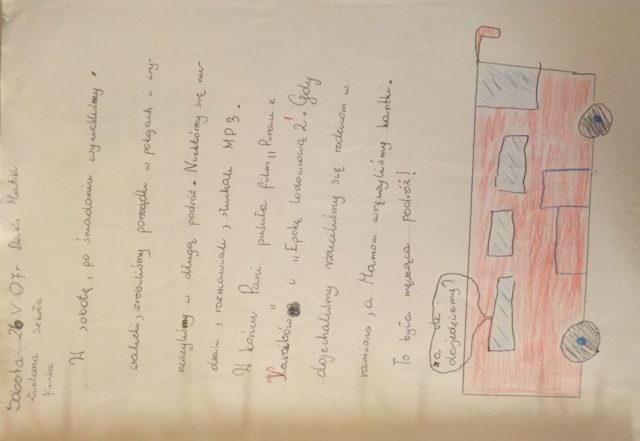 Sobota 26 V 07r Dzień Matki
Zielona Szkoła
W sobotę, po śniadaniu wynieśliśmy
walizki, zrobiliśmy porządki w pokojach i wy-
ruszyliśmy w długą podróż. Niektórzy się nu-
dzili, rozmawiali, słuchali MP3.
W końcu Pani puściła film „Piraci z
Karaibów" i „Epokę lodowcową 2". Gdy
dojechaliśmy rzuciliśmy się rodzicom w
ramiona, a Mamom wręczyliśmy kartki.
To była męcząca podróż!
za ile
dojedziemy?